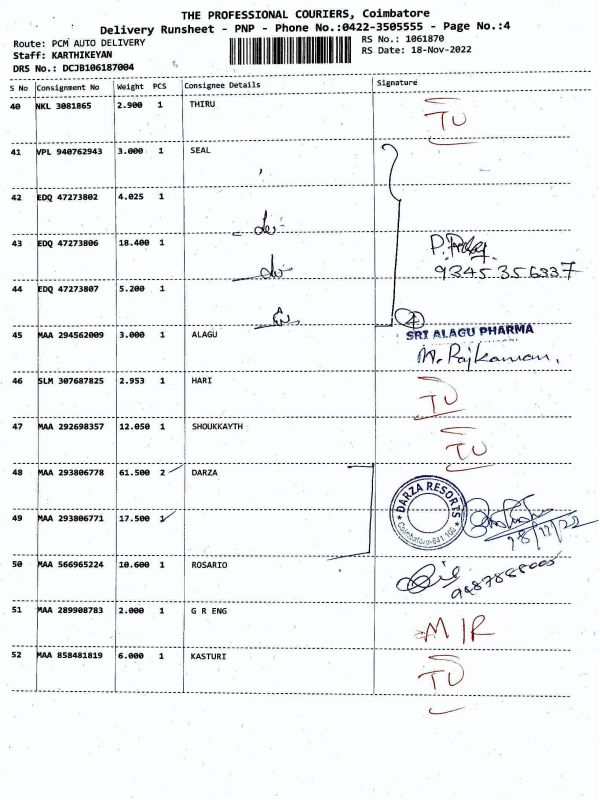 THE PROFESSIONAL COURIERS, Coimbatore
Delivery Runsheet - PNP - Phone No.:0422-3505555 - Page No.:4
Route: PCM AUTO DELIVERY
RS No.: 1061870
Staff: KARTHIKEYAN
RS Date: 18-Nov-2022
DRS No.: DCJB106187004
S No Consignment No Weight PCS Consignee Details Signature
40 NKL 3081865 2.900 1 THIRU
TU
41 VPL 940762943 3.000 1 SEAL
42 EDQ 47273802 4.025 1
43 EDQ 47273806 18.400 1
9345356937
44 EDQ 47273807 5.200 1
4
45 MAA 294562009 3.000 1 ALAGU
SRI ALAGU PHARMA
46 SLM 307687825 2.953 1 HARI
TU
47 MAA 292698357 12.050 1 SHOUKKAYTH
TU
48 MAA 293806778 61.500 2 DARZA
DARZA RESORTS
49 MAA 293806771 17.500 1
18/11/22
50 MAA 566965224 10.600 1 ROSARIO
51 MAA 289908783 2.000 1 G R ENG
M/R
52 MAA 858481819 6.000 1 KASTURI
TU